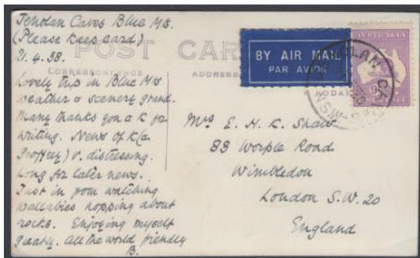 Jenolan Caves Blue Mts.
(Please keep card)
21.4.38.
POST CARD
CORRESPONDENCE
ADDRESS
BY AIR MAIL
PAR AVION
Lovely trip in Blue Mts
weather & scenery grand.
Many thanks you & K for
writing. News of K (&
Geoffrey) v. distressing.
Long for later news.
Just in from watching
wallabies hopping about
rocks. Enjoying myself
greatly. All the world friendly
B.
Mrs E. H. K. Shaw
83 Worple Road
Wimbledon
London S.W. 20
England